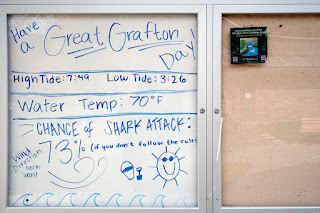 Have a
Great Grafton
Day!
High Tide: 7:49 Low Tide: 3:26
Water Temp: 70°F
CHANCE of SHARK ATTACK:
73% (if you don't follow the rules
Wind
Direction